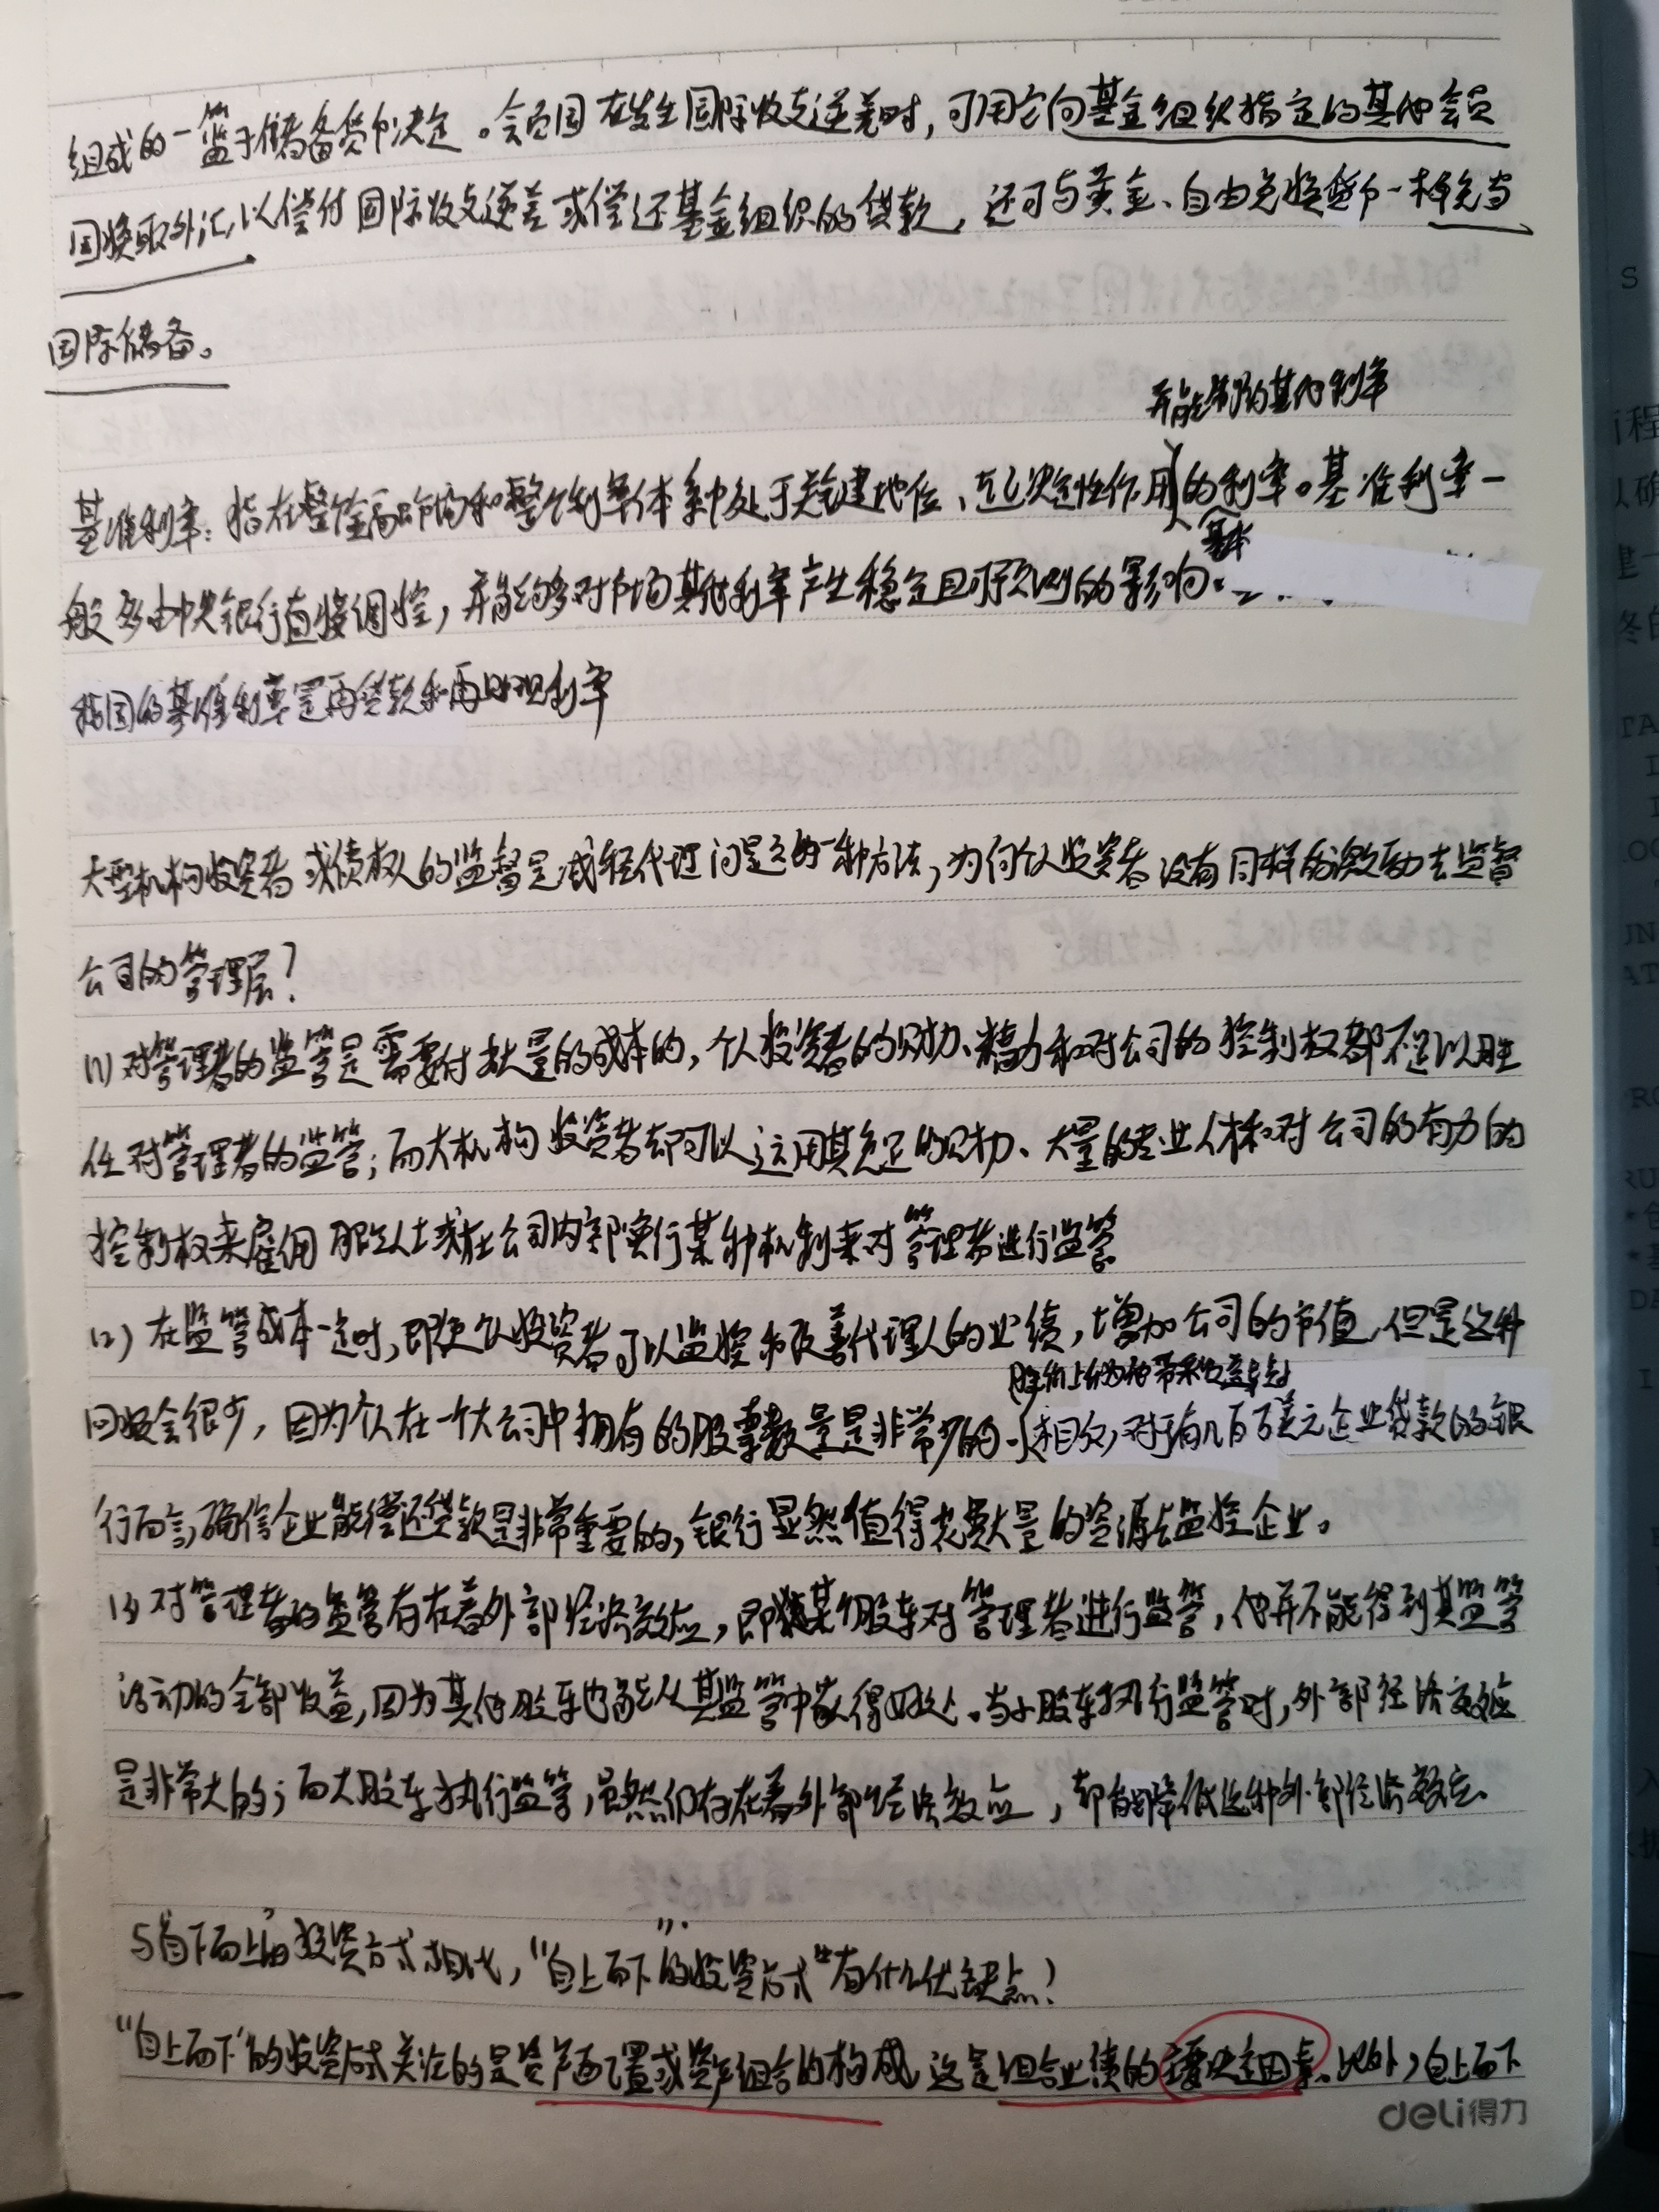 组成的一篮子储备货币决定。会员国在发生国际收支逆差时,可用它向基金组织指定的其他会员
国换取外汇,以偿付国际收支逆差或偿还基金组织的贷款,还可与黄金、自由兑换货币一样充当
国际储备。
并能制约其他利率
基准利率:指在整个金融市场和整个利率体系中处于关键地位、起决定性作用的利率。基准利率一
基本
般多由中央银行直接调控,并能够对市场其他利率产生稳定且可预测的影响.
我国的基准利率是再贷款和再贴现利率
大型机构投资者或债权人的监督是减轻代理问题的一种方法,为何个人投资者没有同样的激励去监督
公司的管理层?
(1)对管理者的监管是需要付出大量的成本的,个人投资者的财力、精力和对公司的控制权都不足以胜
任对管理者的监管;而大机构投资者却可以运用其充足的财力、大量的专业人才和对公司的有力的
控制权来雇佣 人士或在公司内部实行某种机制来对管理者进行监管
(2)在监管成本一定时,即使个人投资者可以监控和改善代理人的业绩,增加公司的市值,但是这种
股价上升为他带来收益车少
回报会很少,因为个人在一个大公司中拥有的股票数量是非常少的.相反,对于有几百万美元企业贷款的银
行而言,确信企业能偿还贷款是非常重要的,银行显然值得花费大量的资源去监控企业。
(3)对管理者的监管存在着外部经济效应,即某个股东对管理者进行监管,他并不能得到其监管
活动的全部收益,因为其他股东也能从其监管中获得好处。当小股东执行监管时,外部经济效应
是非常大的;而大股东执行监管,虽然仍存在着外部经济效应,却能降低这种外部经济效应.
与"自下而上"的投资方式相比,"自上而下"的投资方式有什么优缺点?
"自上而下"的投资方式关注的是资产配置或资产组合的构成,这是组合业绩的主要决定因素.此外,自上而下
deli得力